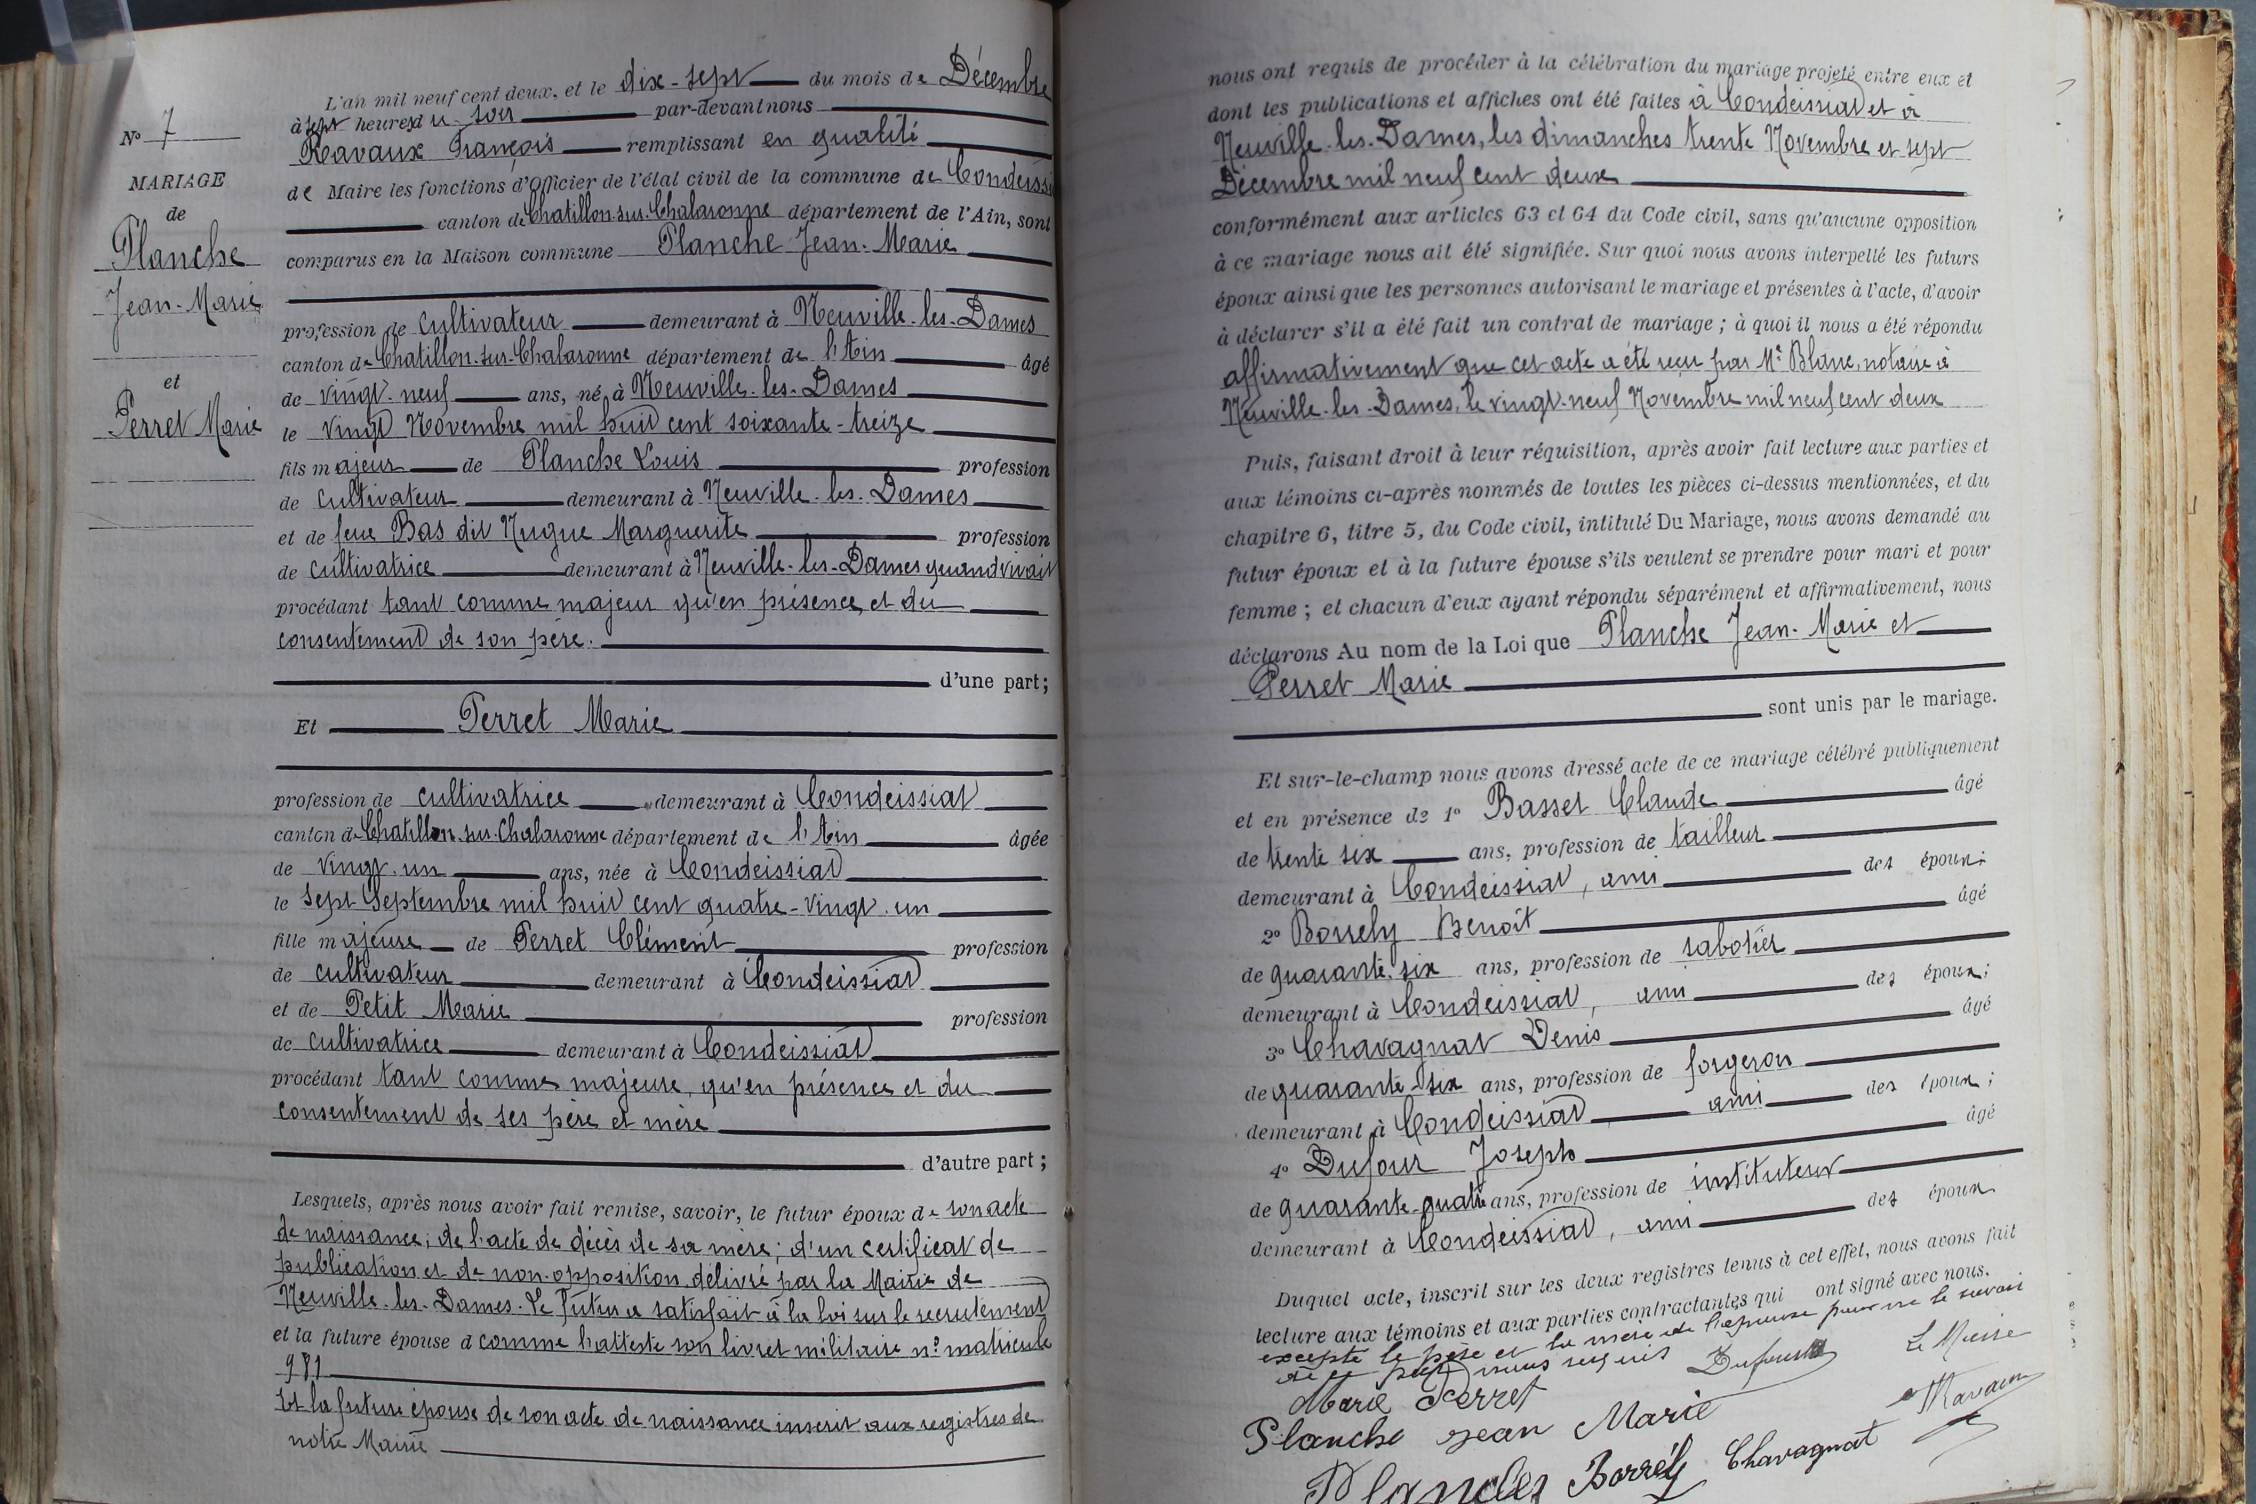 N° 7
MARIAGE
de
Planche
Jean-Marie
et
Perret Marie
L'an mil neuf cent deux, et le dix-sept du mois de Décembre
à sept heures du soir par-devant nous
Ravaux François remplissant en qualité
de Maire les fonctions d'Officier de l'état civil de la commune de Condeissi
canton de Chatillon-sur-Chalaronne département de l'Ain, sont
comparus en la Maison commune Planche Jean-Marie
profession de cultivateur demeurant à Neuville-les-Dames
canton de Chatillon-sur-Chalaronne département de l'Ain âgé
de vingt-neuf ans, né à Neuville-les-Dames
le vingt Novembre mil huit cent soixante-treize
fils majeur de Planche Louis profession
de cultivateur demeurant à Neuville-les-Dames
et de feue Bas dit Nugue Marguerite profession
de cultivatrice demeurant à Neuville-les-Dames quand vivait
procédant tant comme majeur qu'en présence et du
consentement de son père.
d'une part;
Et Perret Marie
profession de cultivatrice demeurant à Condeissiat
canton de Chatillon-sur-Chalaronne département de l'Ain âgée
de vingt-un ans, née à Condeissiat
le sept Septembre mil huit cent quatre-vingt-un
fille majeure de Perret Clément profession
de cultivateur demeurant à Condeissiat
et de Petit Marie profession
de cultivatrice demeurant à Condeissiat
procédant tant comme majeure, qu'en présence et du
consentement de ses père et mère
d'autre part;
Lesquels, après nous avoir fait remise, savoir, le futur époux de son acte
de naissance; de l'acte de décès de sa mère; d'un certificat de
publication et de non-opposition délivré par la Mairie de
Neuville-les-Dames. Le futur a satisfait à la loi sur le recrutement
et la future épouse d comme l'atteste son livret militaire n° matricule
981
Et la future épouse de son acte de naissance inscrit aux registres de
notre Mairie
nous ont requis de procéder à la célébration du mariage projeté entre eux et
dont les publications et affiches ont été faites à Condeissiat et à
Neuville-les-Dames, les dimanches trente Novembre et sept
Décembre mil neuf cent deux
conformément aux articles 63 et 64 du Code civil, sans qu'aucune opposition
à ce mariage nous ait été signifiée. Sur quoi nous avons interpellé les futurs
époux ainsi que les personnes autorisant le mariage et présentes à l'acte, d'avoir
à déclarer s'il a été fait un contrat de mariage; à quoi il nous a été répondu
affirmativement que cet acte a été reçu par Me Blanc, notaire à
Neuville-les-Dames, le vingt-neuf Novembre mil neuf cent deux
Puis, faisant droit à leur réquisition, après avoir fait lecture aux parties et
aux témoins ci-après nommés de toutes les pièces ci-dessus mentionnées, et du
chapitre 6, titre 5, du Code civil, intitulé Du Mariage, nous avons demandé au
futur époux et à la future épouse s'ils veulent se prendre pour mari et pour
femme; et chacun d'eux ayant répondu séparément et affirmativement, nous
déclarons Au nom de la Loi que Planche Jean-Marie et
Perret Marie
sont unis par le mariage.
Et sur-le-champ nous avons dressé acte de ce mariage célébré publiquement
et en présence de 1° Basset Claude âgé
de trente six ans, profession de tailleur
demeurant à Condeissiat, ami des époux;
2° Borrely Benoît âgé
de quarante-six ans, profession de sabotier
demeurant à Condeissiat, ami des époux;
3° Chavagnat Denis âgé
de quarante-six ans, profession de forgeron
demeurant à Condeissiat ami des époux;
4° Dufour Joseph âgé
de quarante-quatre ans, profession de instituteur
demeurant à Condeissiat, ami des époux
Duquel acte, inscrit sur les deux registres tenus à cet effet, nous avons fait
lecture aux témoins et aux parties contractantes qui ont signé avec nous.
excepté le père et la mère de l'épouse pour ne le savoir
de ce requis Dufour Le Maire
Marie Perret
Ravaux
Planche Jean Marie
Planche Borrely Chavagnat